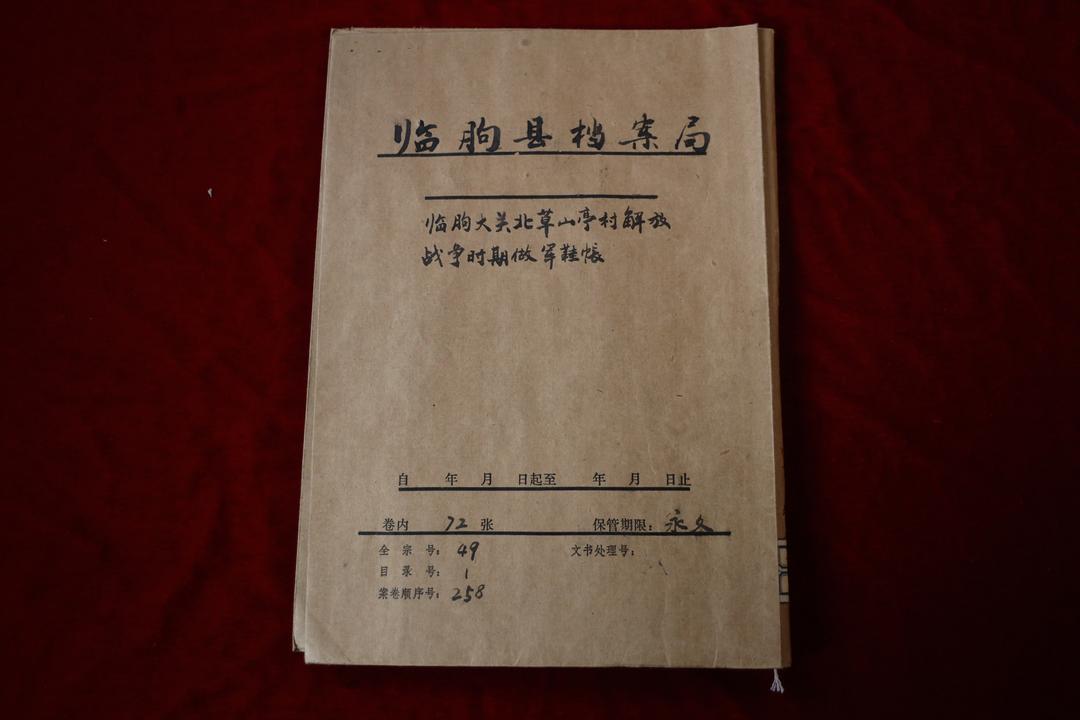 临朐县档案局
临朐大关北草山亭村解放
战争时期做军鞋帐
自 年 月 日起至 年 月 日止
卷内 72 张 保管期限：永久
全宗号：49 文书处理号：
目录号：1
案卷顺序号：258